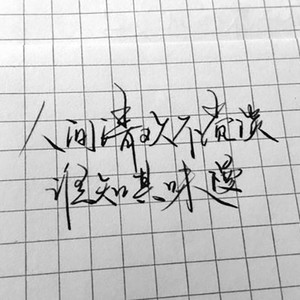 人间清欢不清淡
谁知其味